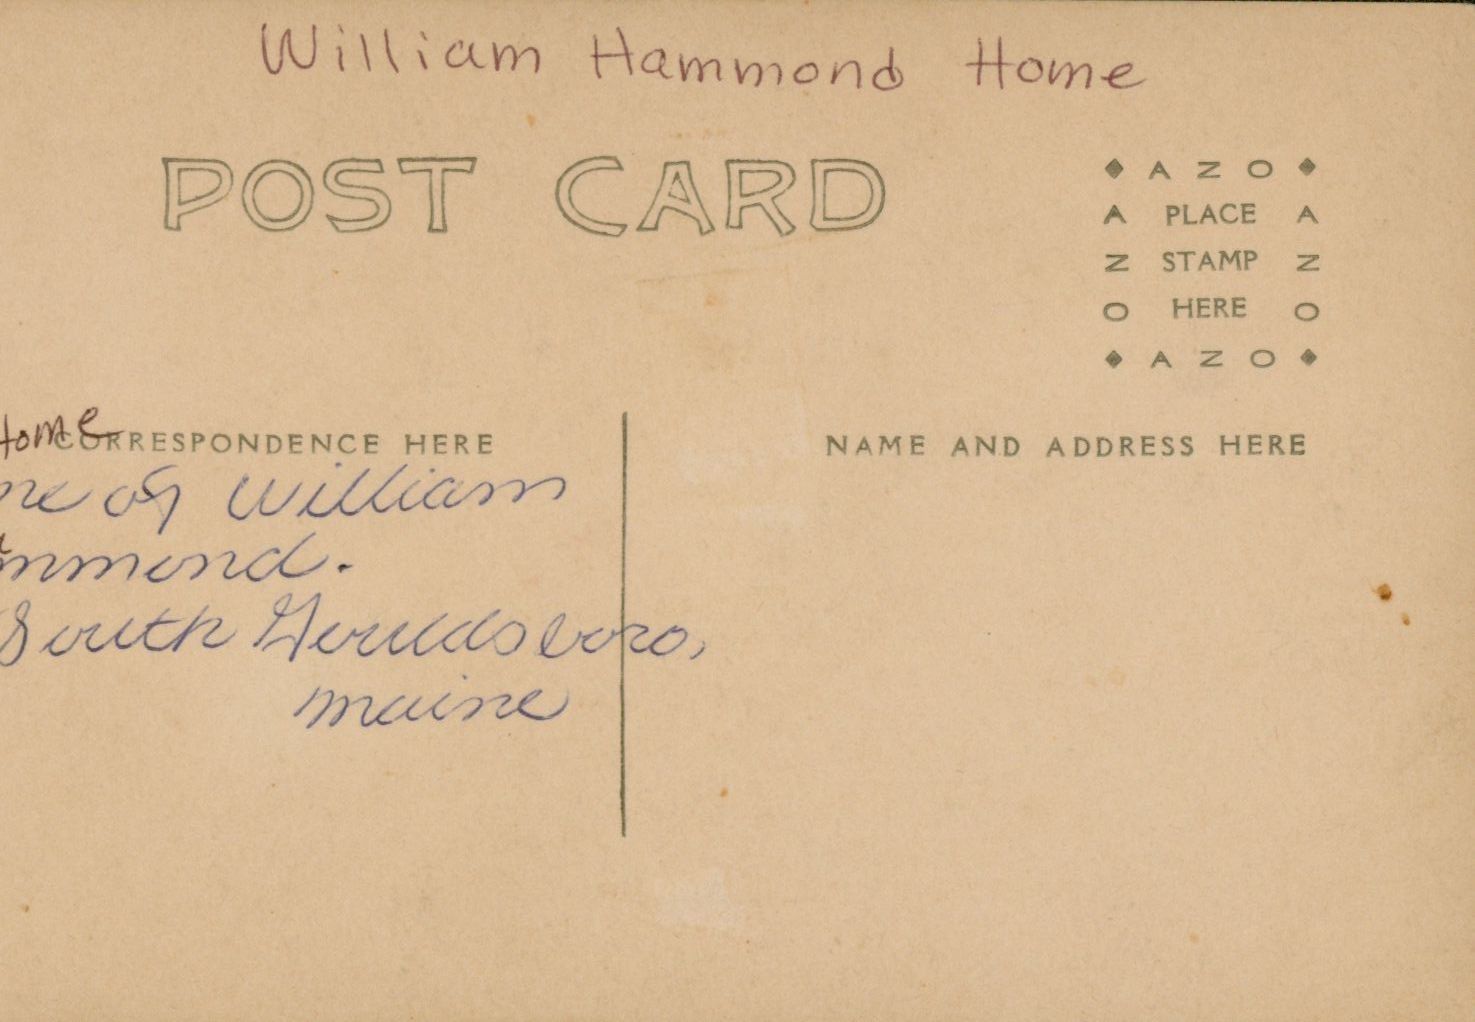 William Hammond Home
POST CARD
◆ A Z O ◆
A PLACE A
Z STAMP Z
O HERE O
◆ A Z O ◆
Home
CORRESPONDENCE HERE
NAME AND ADDRESS HERE
me of William
mmond.
South Gouldsboro,
maine